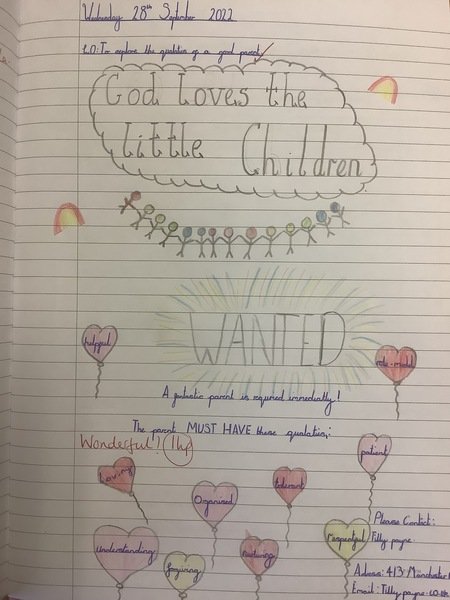 Wednesday 28th September 2022
L.O: To explore the qualities of a good parent
God Loves the
Little Children
WANTED
helpful
role-model
A fantastic parent is required immediately!
The parent MUST HAVE these qualities:
Wonderful! 1hp
patient
Loving
tolerant
Organised
Please Contact:
respectful
Tilly payne
Understanding
nurturing
forgiving
Adress: 413 Manchester
Email: Tilly.payne